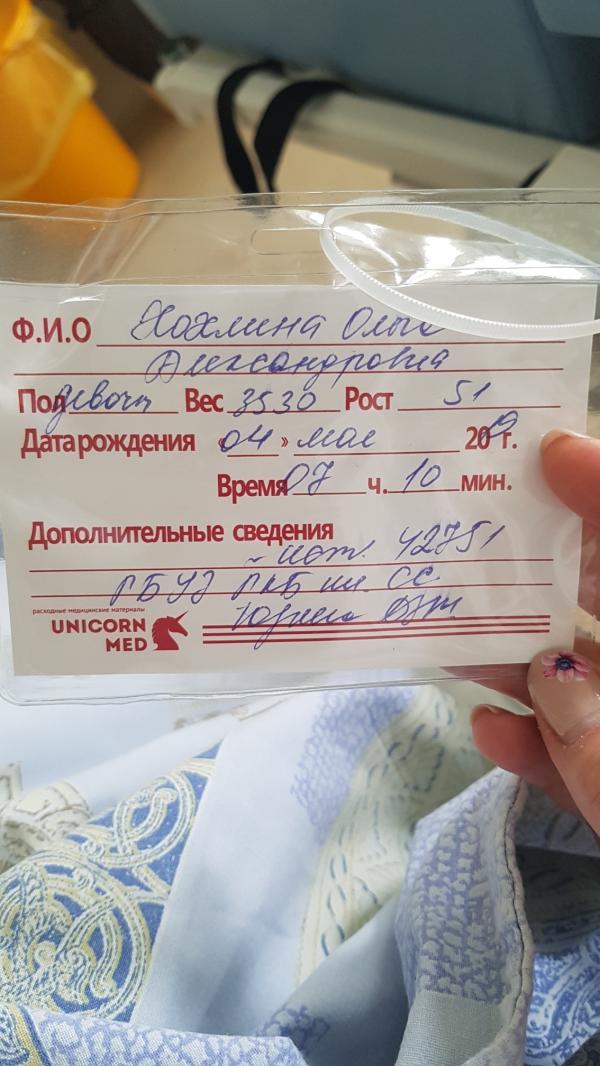 Ф.И.О Хохлина Ольга
Александровна
Пол девочка Вес 3530 Рост 51
Дата рождения «04» мая 2019 г.
Время 07 ч. 10 мин.
Дополнительные сведения
ист. 42751
ГБУЗ ГКБ им. СС
Юдина ДЗМ
расходные медицинские материалы
UNICORN
MED